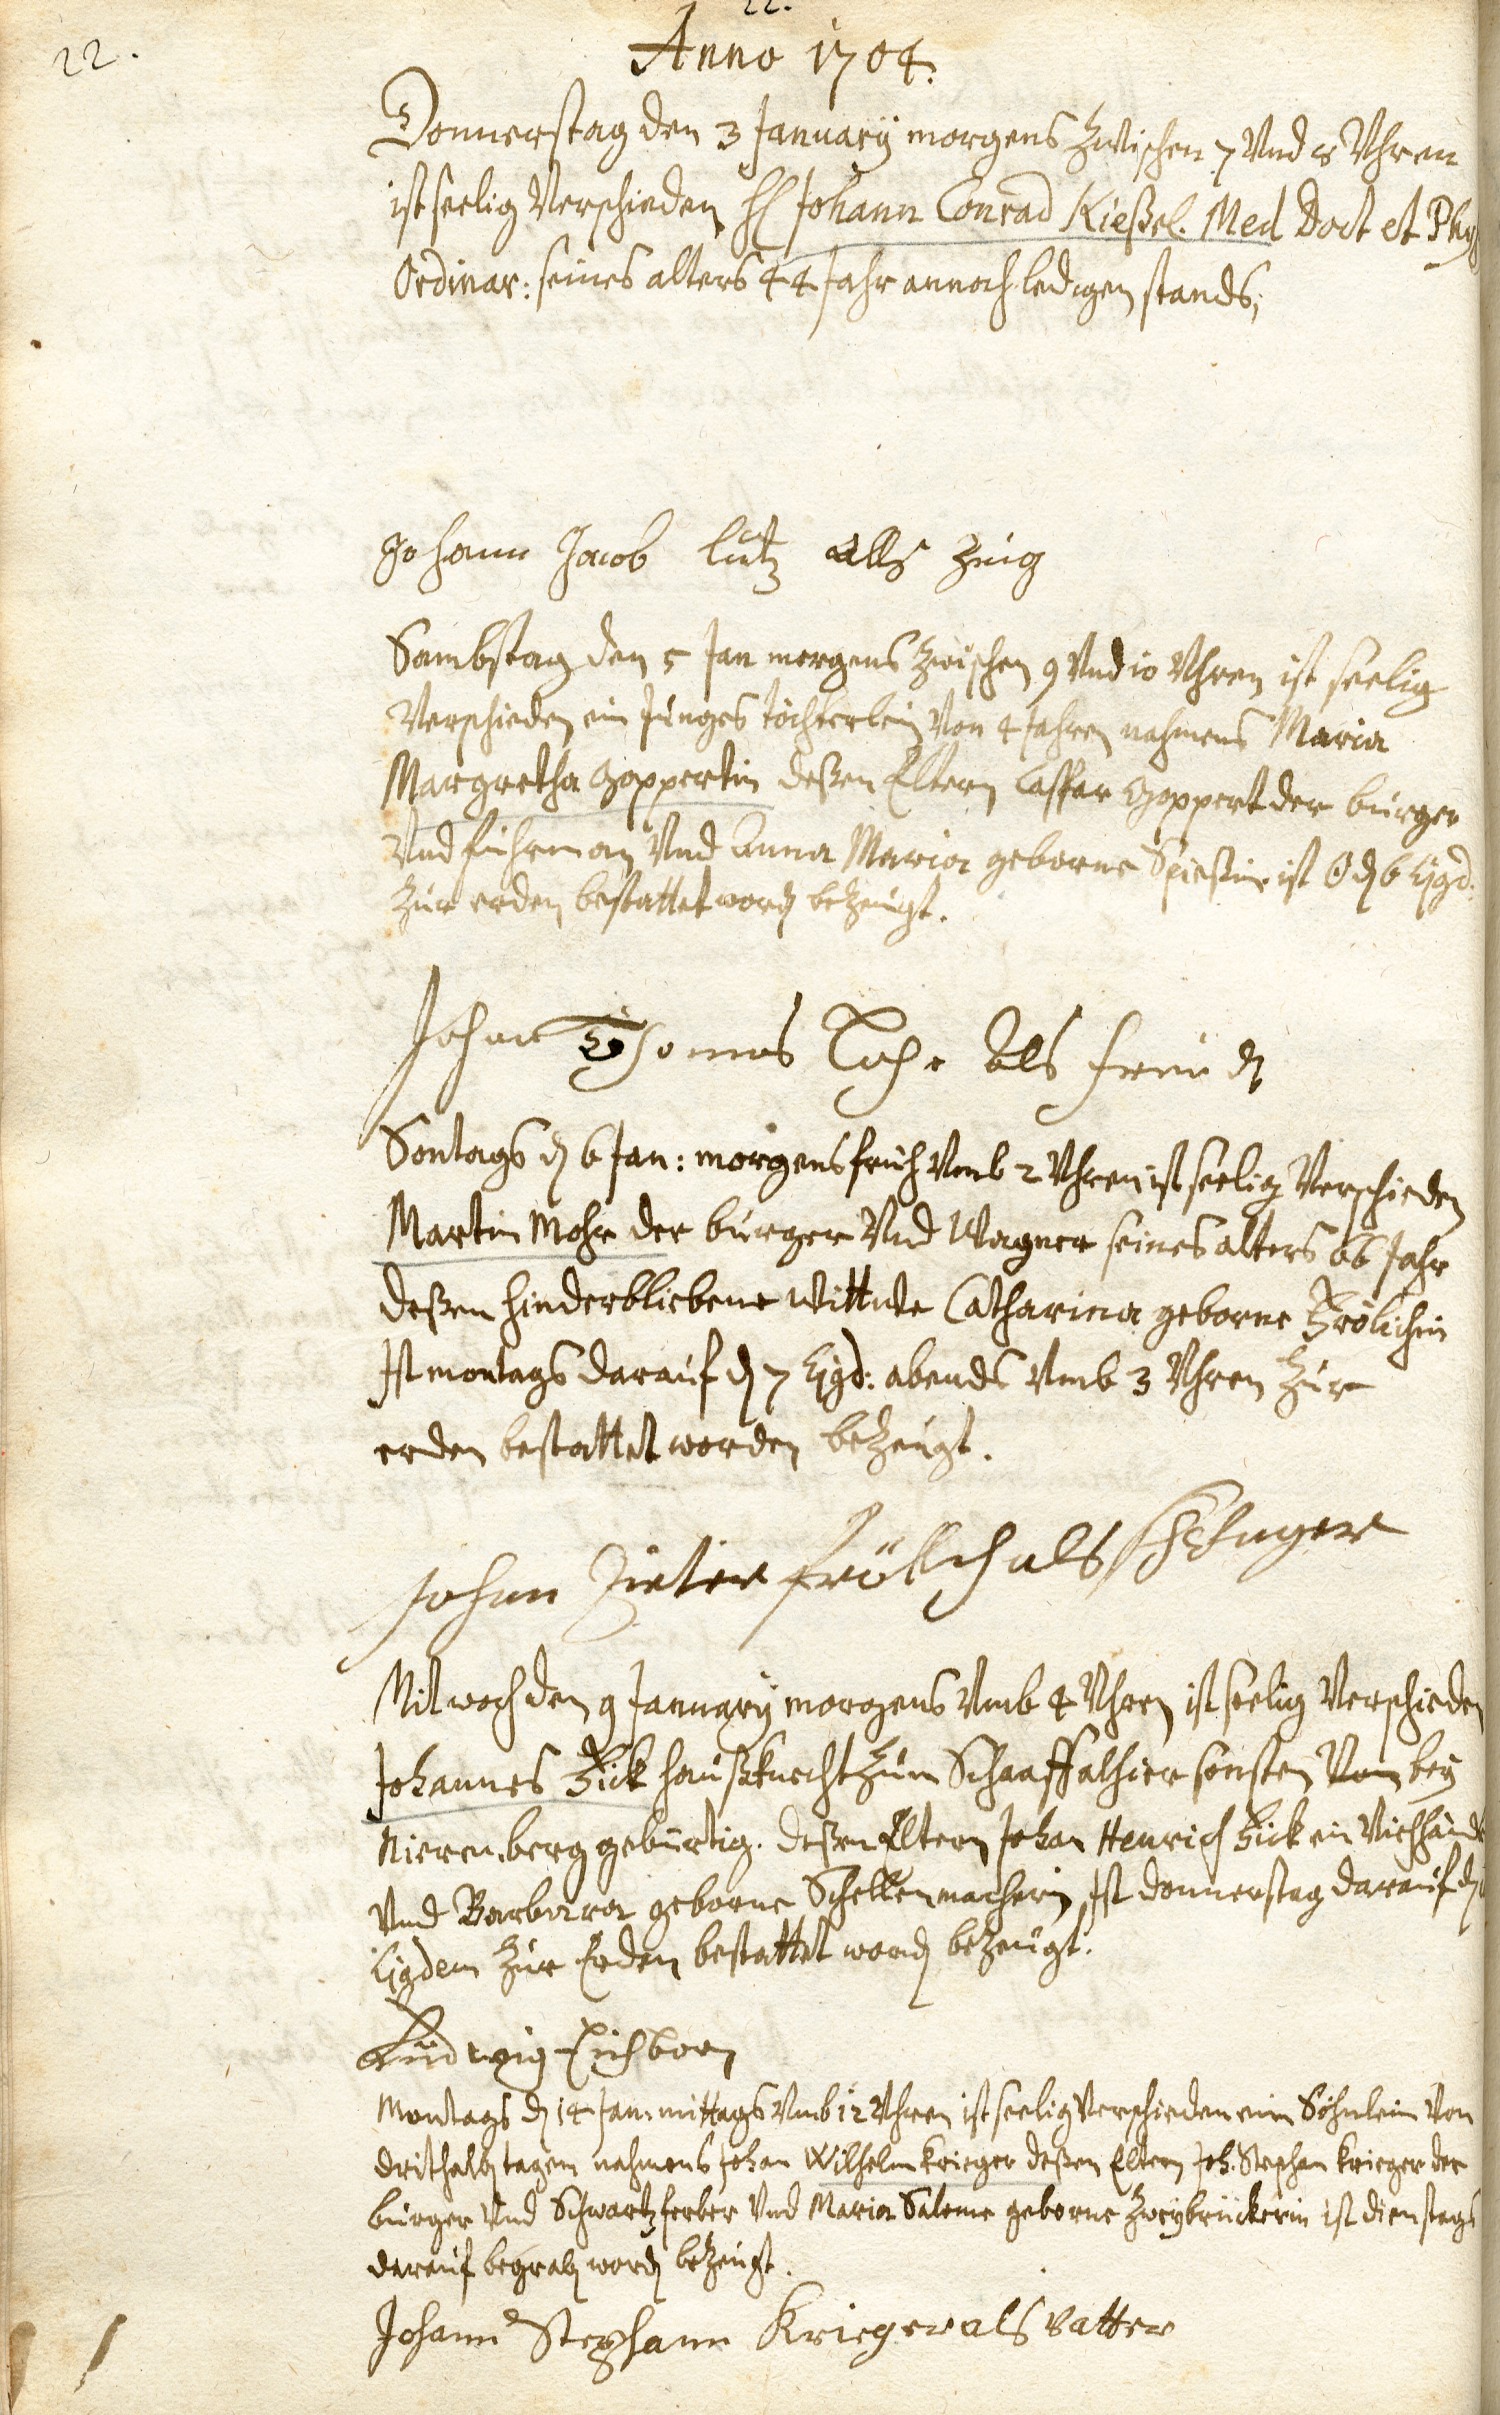 22.
22.
Anno 1704.
Donnerstag den 3 January morgens zwischen 7 Vnd 8 Vhren
ist seelig Verschieden H Johann Conrad Kießel. Med Doct et Phy
Ordinar: seines alters 44 Jahr annoch ledigen stands,
Johann Jacob Lutz alls Zeug
Sambstag den 5 Jan morgens zwischen 9 Vnd 10 Vhren ist seelig
Verschieden ein Junges töchterlein Von 4 Jahren nahmens Maria
Margretha Goppertin deßen Eltern Casper Goppert der burger
Vnd fuhrman Vnd Anna Maria geborne Spiesin ist d 6
zur erden bestattet word bezeugt.
Johan Thomas als freund
Sontags d 6 Jan: morgens früh Vmb 2 Vhren ist seelig Verschieden
Martin Mohr der burger Vnd Wagner seines alters 66 Jahr
deßen hinderbliebene Wittwe Catharina geborne Frölichin
Ist montags darauf d 7 abends Vmb 3 Vhren zur
erden bestattet worden bezeugt.
Johan Pieter frölich als Schwager
Mitwoch den 9 January morgens Vmb 4 Vhren ist seelig Verschieden
Johannes Zick haußknecht zum Schaaff alhier sonsten Von bey
Nierenberg gebürtig. deßen Eltern Johan Henrich Zick ein Viehhändl
Vnd Barbara geborne Schellenmacherin Ist donnerstag darauf d
zur Erden bestattet word bezeugt.
Ludwig Eichborn
Montags d 14 Jan: mittags Vmb 12 Vhren ist seelig Verschieden ein Söhnlein Von
drithalb tagen nahmens Johan Wilhelm Krieger deßen Eltern Joh. Stephan Krieger der
burger Vnd Schwartzferber Vnd Maria Salome geborne Zweybrückerin ist dienstags
darauf begrab word bezeugt.
Johann Stephann Krieger als Vatter